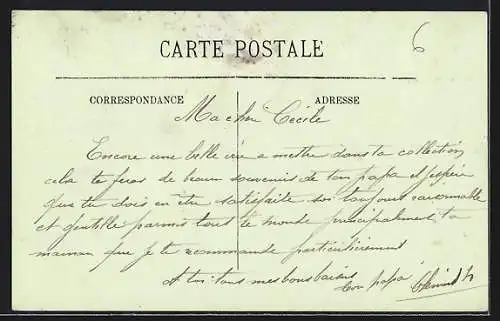 6
CARTE POSTALE
CORRESPONDANCE
ADRESSE
Ma chere Cecile
Encore une belle vue a mettre dans ta collection
cela te feras de beaux souvenirs de ton papa et j'espère
que tu dois en être satisfaite soi toujours raisonnable
et gentille parmis tout le monde principalement ta
maman que je te recommande particulièrement
A toi tous mes bons baisers
ton papa